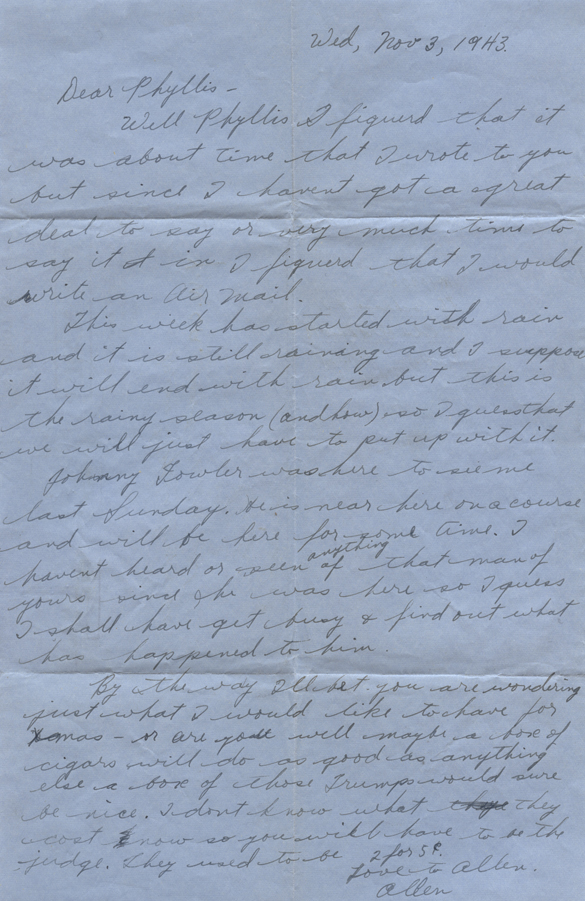 Wed, Nov 3, 1943.
Dear Phyllis -
Well Phyllis I figuerd that it
was about time that I wrote to you
but since I havent got a great
deal to say or very much time to
say it in I figuerd that I would
write an Air Mail.
This week has started with rain
and it is still raining and I suppose
it will end with rain but this is
the rainy season (and how) so I guess that
we will just have to put up with it.
Johnny Fowler was here to see me
last Sunday. He is near here on a course
and will be here for some time. I
havent heard or seen anything of that man of
yours since he was here so I guess
I shall have get busy & find out what
has happened to him.
By the way I'll bet you are wondering
just what I would like to have for
Xmas - are you well maybe a box of
cigars will do as good as anything
else a box of those Trumps would sure
be nice. I dont know what they
cost now so you will have to be the
judge. They used to be 2 for 5¢.
Love to Allen.
Allen